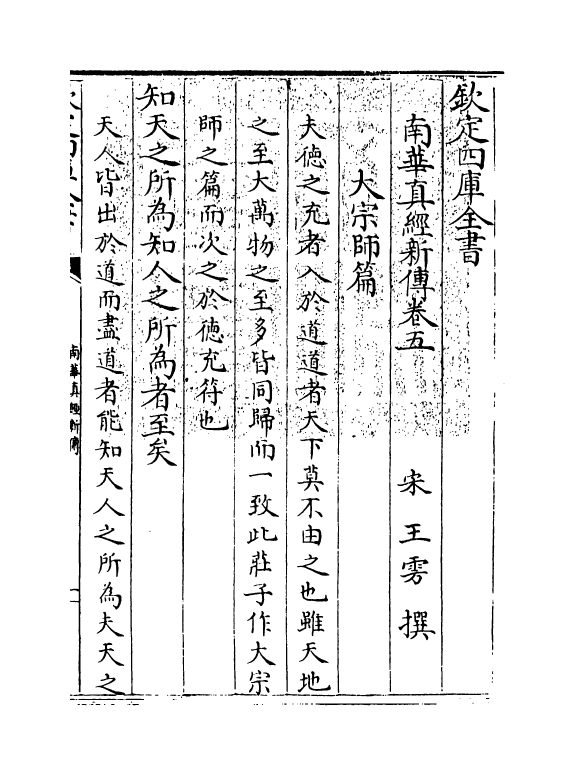 欽定四庫全書
南華真經新傳卷五
宋王雱撰
大宗師篇
夫徳之充者入於道道者天下莫不由之也雖天地
之至大萬物之至多皆同歸而一致此莊子作大宗
師之篇而次之於徳充符也
知天之所為知人之所為者至矣
天人皆出於道而盡道者能知天人之所為夫天之
南華真經新傳
一